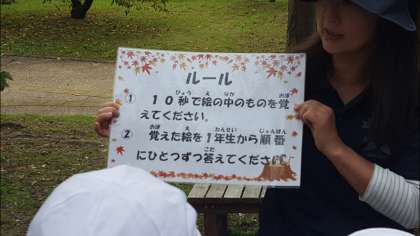 ルール
① 10秒で絵の中のものを覚
えてください。
② 覚えた絵を1年生から順番
にひとつずつ答えてください。